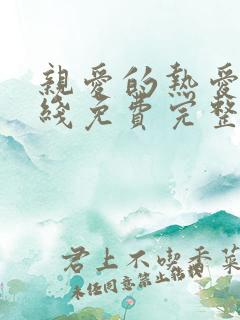 親愛的熱愛
綫免費完整
君上不喫香菜
未经同意禁止转载